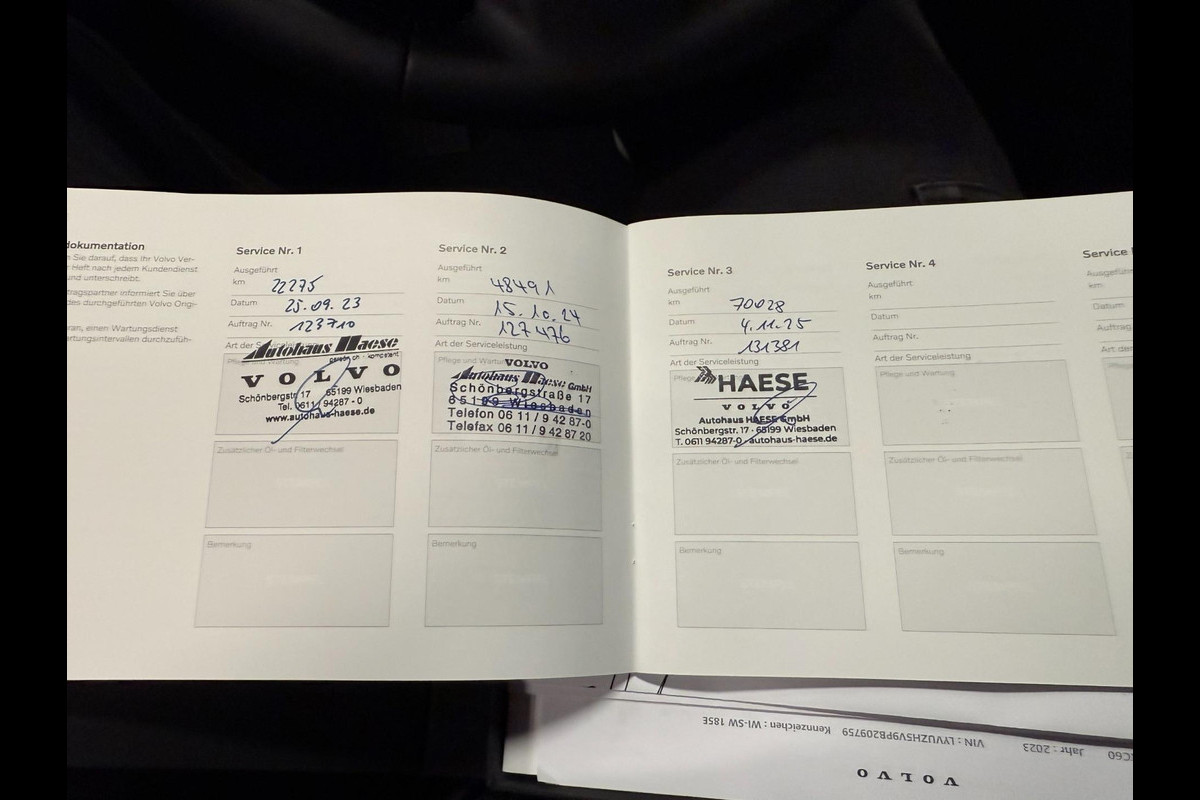 dokumentation
n Sie darauf, dass Ihr Volvo Ver-
r Heft nach jedem Kundendienst
und unterschreibt.
tragspartner informiert Sie über
des durchgeführten Volvo Origi-
ran, einen Wartungsdienst
rtungsintervallen durchzufüh-
Service Nr. 1
Ausgeführt
km 22275
Datum 25.09.23
Auftrag Nr. 123710
Art der Serviceleistung
Autohaus Haese
persönlich · kompetent
VOLVO
Schönbergstr. 17 65199 Wiesbaden
Tel. 0611 / 94287 - 0
www.autohaus-haese.de
Zusätzlicher Öl- und Filterwechsel
Bemerkung
Service Nr. 2
Ausgeführt
km 48491
Datum 15.10.24
Auftrag Nr. 127476
Art der Serviceleistung
Pflege und Wartung
VOLVO
Autohaus Haese GmbH
Schönbergstraße 17
65199 Wiesbaden
Telefon 06 11 / 9 42 87-0
Telefax 06 11 / 9 42 87 20
Zusätzlicher Öl- und Filterwechsel
Bemerkung
Service Nr. 3
Ausgeführt
km 70028
Datum 4.11.25
Auftrag Nr. 131381
Art der Serviceleistung
HAESE
VOLVO
Autohaus HAESE GmbH
Schönbergstr. 17 · 65199 Wiesbaden
T. 0611 94287-0 · autohaus-haese.de
Zusätzlicher Öl- und Filterwechsel
Bemerkung
Service Nr. 4
Ausgeführt
km
Datum
Auftrag Nr.
Art der Serviceleistung
Pflege und Wartung
Zusätzlicher Öl- und Filterwechsel
Bemerkung
Service
Ausgeführt
km
Datum
Auftrag
Art der
VOLVO
XC60 Jahr : 2023 VIN : LYVUZH5V9PB209759 Kennzeichen : WI-SW 185E